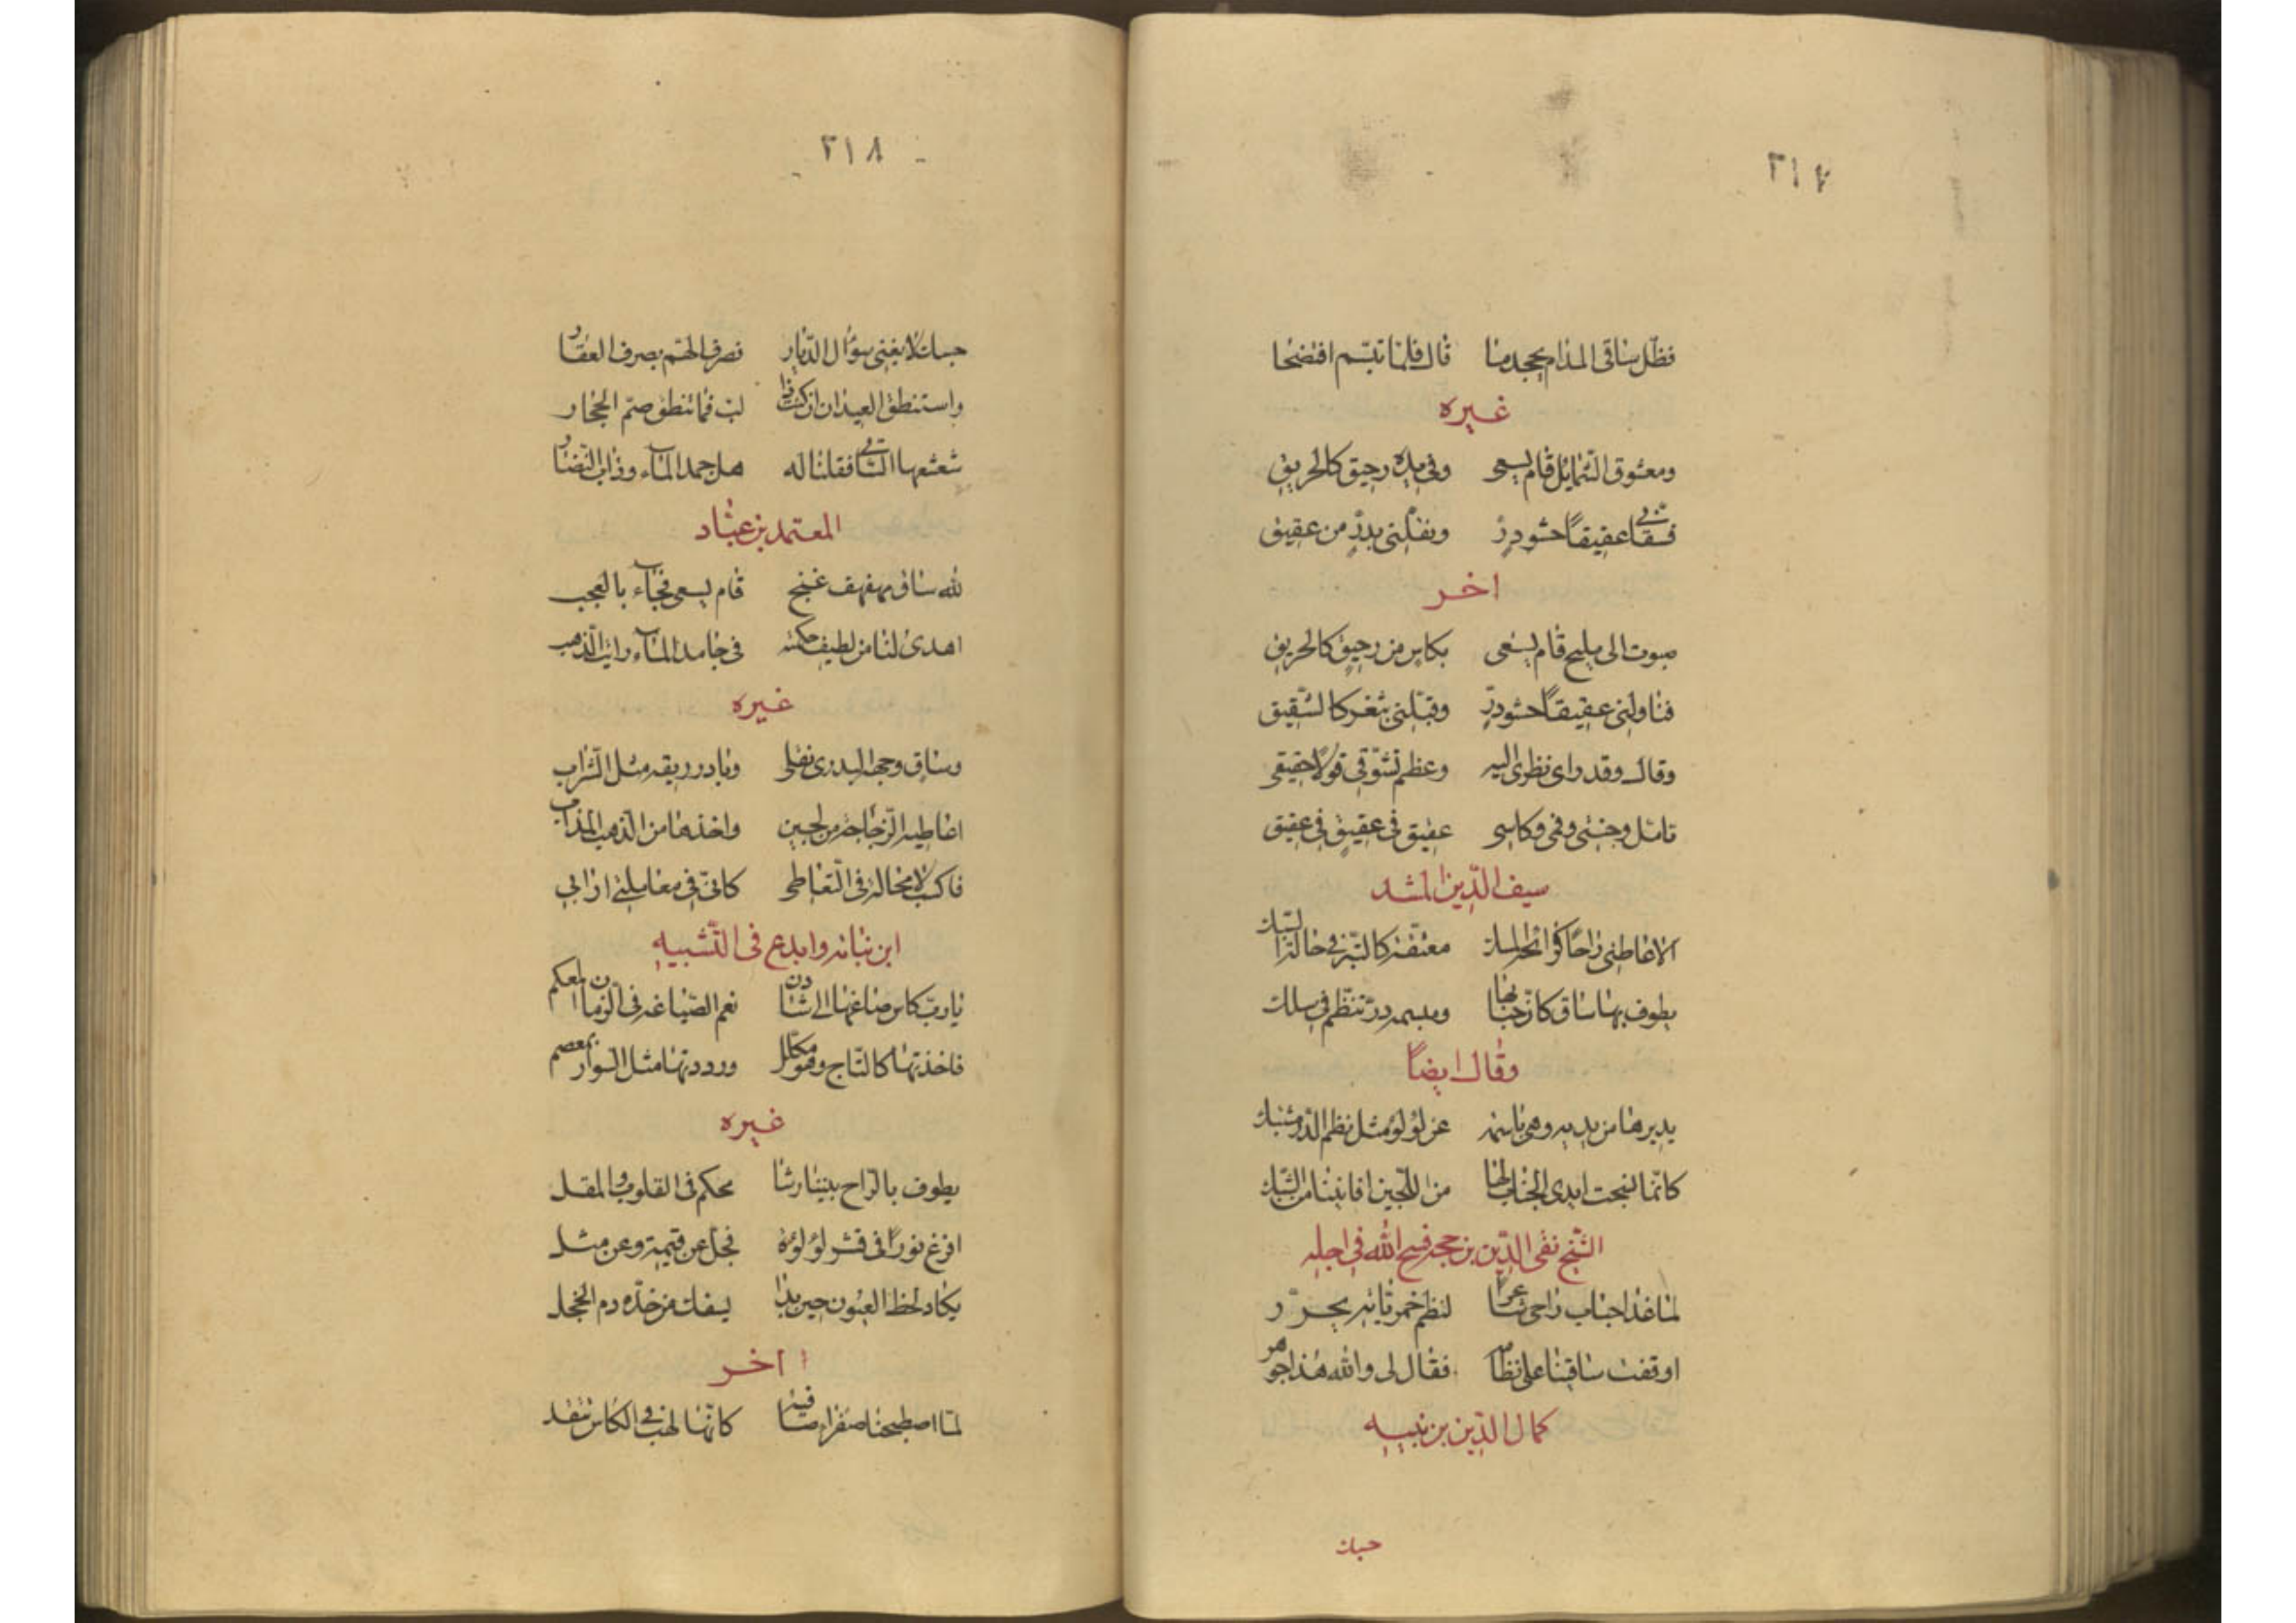 ٣١٧
فظلّ ساقى المدام يجحد ما قال فلمّا تبسّم افتضحا
غيره
ومعشوق الشمايل قام يسعى وفى يده رحيق كالحريق
فسقانى عقيقاً حشو درّ ونقّلنى بدرّ من عقيق
اخر
صبوت الى مليح قام يسعى بكاس من رحيق كالحريق
فناولنى عقيقاً حشو درّ وقبّلنى بثغر كالشقيق
وقال وقد راى نظرى اليه وعظم تشوّقى قولا حقيقى
تامّل وجنتى وفمى وكاسى عقيق فى عقيق فى عقيق
سيف الدّين المشد
الا عاطنى راحاً كرائحة المسك معتّقة كالتبر فى حالة السبك
يطوف بها ساق كانّ حبابها ومبسمه درّ تنظّم فى سلك
وقال ايضاً
يديرها من يديه وهى باسمة عن لؤلؤ مثل نظم الدّر مشتبك
كانّما نسجت ايدى الحباب لها من اللّجين افانينا من الشبك
الشّيخ تقى الدّين بن حجه فسح الله فى اجله
لمّا غدا حباب راحى شاعراً لنظم خمريّاته يحرّر
اوقفت ساقينا على نظامه فقال لى والله هذا جوهر
كمال الدّين بن نبيه
حسبك
٣١٨
حسبك لا يغنى سؤال الدّيار فصرف الهمّ بصرف العقار
واستنطق العيدان ان كنت ذا لبّ فما تنطق صمّ الحجار
شعشعها السّاقى فقلنا له هل جمد المآء وذاب النّضار
المعتمد بن عبّاد
لله ساق مهفهف غنج قام يسعى فجآء بالعجب
اهدى لنا من لطيف حكمته فى جامد المآء ذايب الذّهب
غيره
وساق وجهه البدرى نقلى وبادر ريقه مثل الشّراب
اعاطيه الزّجاجة من لجين واخذها من الذّهب المذاب
فاكسب لا محالة فى التّعاطى كانّى فى معاملتى ارابى
ابن نباته وابدع فى التّشبيه
يا ربّ كاس صاغها الشّادن نعم الصّياغة فى الزّمان المعكم
فاخذتها كالتّاج وهو مكلّل ورددتها مثل السّوار بمعصم
غيره
يطوف بالرّاح بيننا رشا محكم فى القلوب والمقل
افرغ نوراً فى قشر لؤلؤة فجلّ عن قيمة وعن مثل
يكاد لحظ العيون حين بدا يسفك من خدّه دم الخجل
اخر
لمّا اصطبحنا صفراء صافية كانّها لهب فى الكاس تتّقد